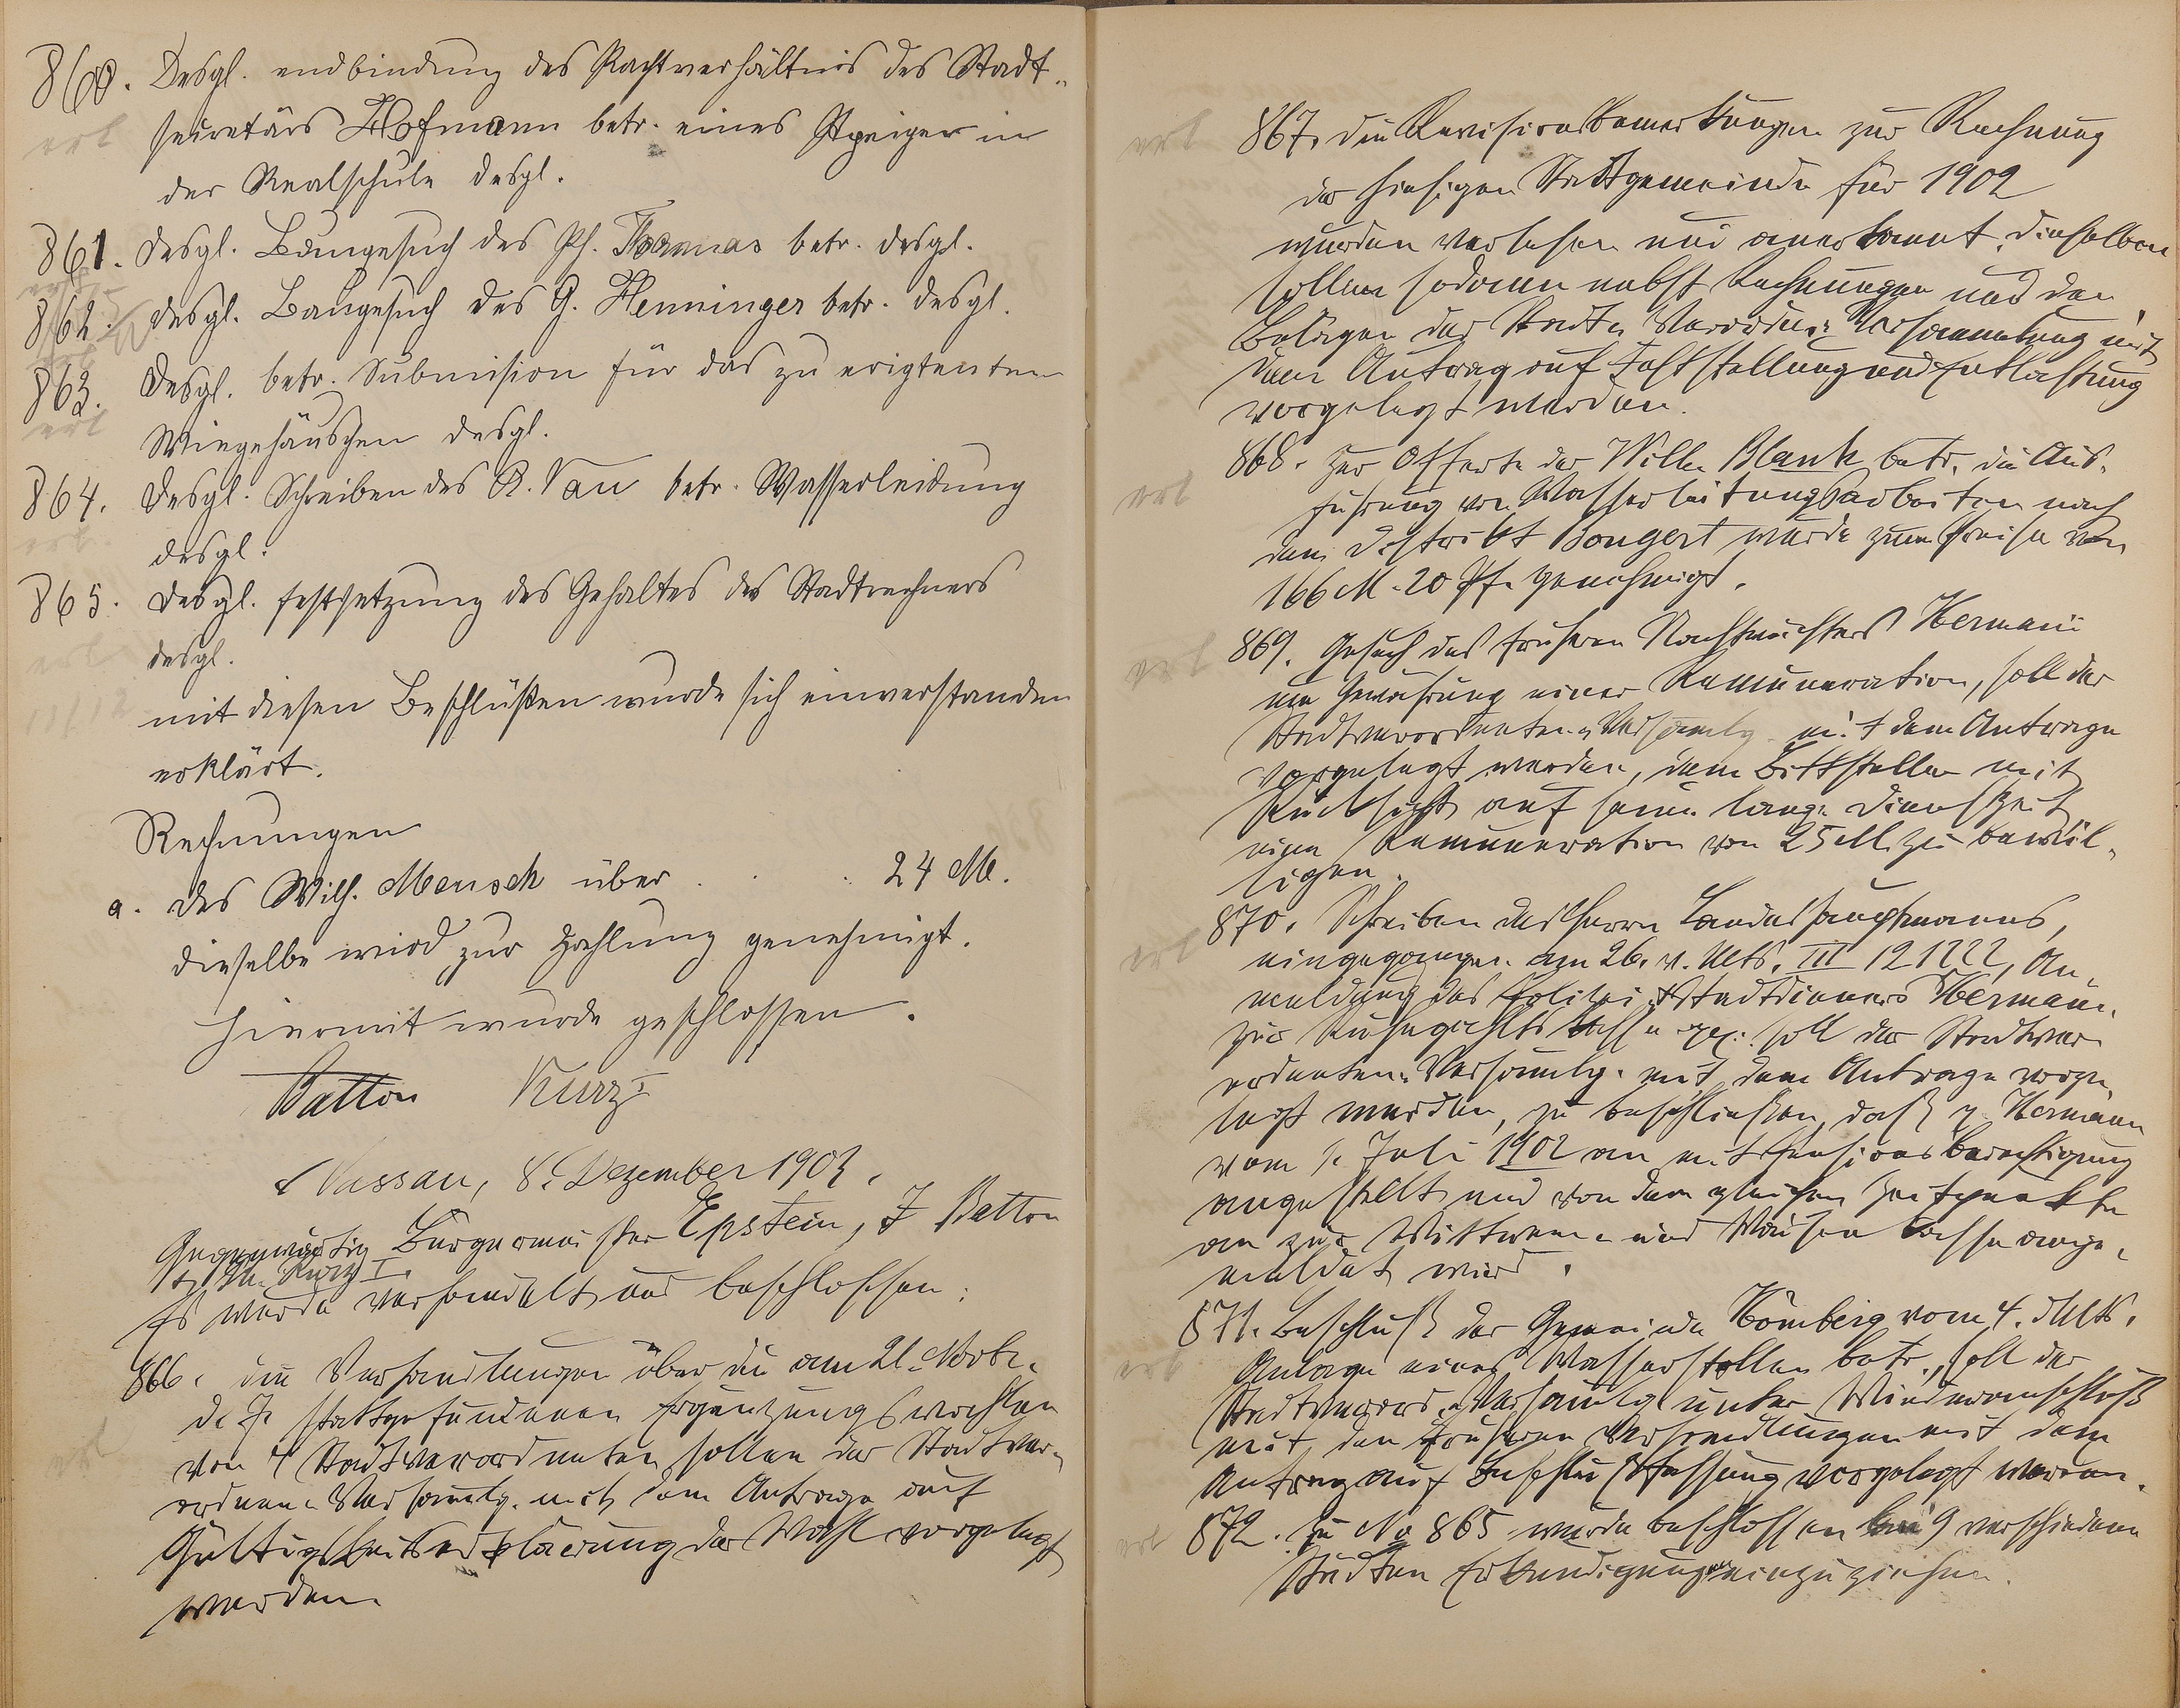 860. Desgl. endbindung des Pachtverhältnis des Stadt-
erl
secretärs Hofmann betr. eines Speiger in
der Realschule desgl.
861. desgl. Baugesuch des Ph. Thomas betr. desgl.
erl
862. desgl. Baugesuch des G. Henninger betr. desgl.
863. desgl. betr. Submision für das zu erigtenten
erl
Wiegehäuschen desgl.
864. desgl. Schreiben des R. Vau betr. Wasserleidung
erl
desgl.
865. desgl. festsetzung des Gehaltes des Stadtrechners
erl
desgl.
11/12
mit diesen Beschlüßen wurde sich einverstanden
erklärt.
Rechnungen
a. des Wilh. Mensch über . . . 24 M.
dieselbe wird zur Zahlung genehmigt.
hiermit wurde geschlossen.
Batton Kurz I
Nassau, 8. Dezember 1903.
Gegenwärtig Bürgermeister Epstein, J Batton
Kurz I.
Es wurde verhandelt und beschlossen:
866. die Verhandlungen über die am 21. Novbr.
erl
d. J. stattgefundenen Ergänzungswahlen
von 4 Stadtverordneten sollen der Stadtver-
ordnen-Versamlg. mit dem Antrage auf
Gültigkeitserklärung der Wahl vorgelegt
werden.
erl
867. die Revisionsbemerkungen zur Rechnung
der hiesigen Stadtgemeinde für 1902
wurden verlesen und anerkannt, dieselben
sollen sodann nebst Rechnungen und den
Belägen der Stadtv. Verordn. Versammlung mit
dem Antrag auf Feststellung und Entlastung
vorgelegt werden.
erl
868. Zur Offerte der Willn Blank betr. die Aus-
führung von Wasserleitungsarbeiten nach
dem Distrikt Bongert wurde zum Preise von
166 M. 20 Pf. genehmigt.
erl
869. Gesuch des früheren Nachtwächters Hermann
um Gewährung einer Remuneration, soll der
Stadtverordneten-Versamlg. mit dem Antrage
vorgelegt werden, dem Bittsteller mit
Rücksicht auf seine lange Dienstzeit
eine Remuneration von 25 M. zu bewil-
ligen.
erl
870. Schreiben des Herrn Landeshauptmanns,
eingegangen am 26. v. Mts. III 121222, An-
meldung des Polizei & Stadtdieners Hermann
zur Ruhegehaltskasse pp. soll der Stadtver-
ordneten-Versamlg. mit dem Antrage vorge-
legt werden, zu beschließen, daß p. Hermann
vom 1. Juli 1902 an mit Pensionsberechtigung
angestellt und von dem gleichen Zeitpunkte
an zur Wittwen- und Waisen kasse ange-
meldet wird.
erl
871. Beschluß der Gemeinde Hömberg vom 4. d. Mts.
Anlage eines Wasserstollen betr., soll der
Stadtverord. Versamlg unter Wiederanschluß
mit den früheren Verhandlungen mit dem
Antrag auf Beschlußfassung vorgelegt werden.
erl
872. Zu No 865 wurde beschlossen bei 9 verschiedenen
Städten Erkundigungen einzuziehen.